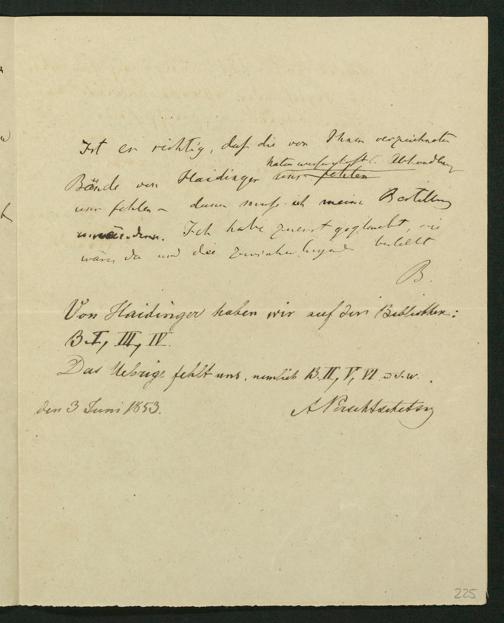 Ist es richtig, daß die von Ihnen verzeichneten
Naturwissenschaftl. Abhandlung
Bände von Haidinger uns fehlen
uns fehlen – dann muß ich meine Bestellung
Ich habe zuerst geglaubt, sie
wären da und die
B.
Von Haidinger haben wir auf der Bibliothek:
B. I, III, IV.
Das Uebrige fehlt uns, nemlich B. II, V, VI u.s.w.
den 3 Juni 1853.
A
225